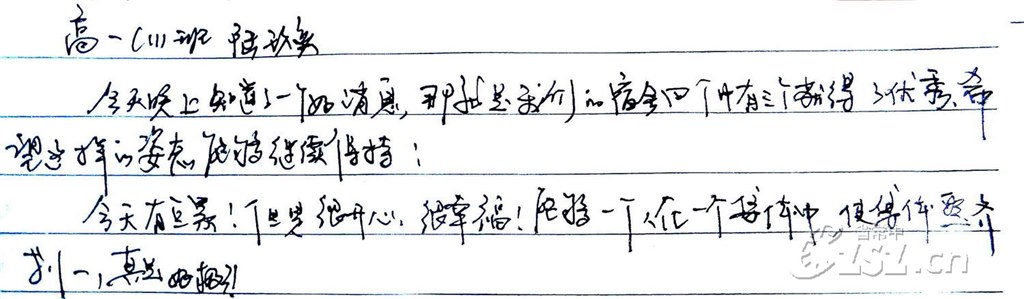 高一(11)班 陆玖奂
今天晚上知道了一个好消息,那就是我们的宿舍四个中有三个都得了优秀,希
望这样的姿态能够继续保持!
今天有点累!但是很开心,很幸福!能够一个人在一个集体中,使得体整齐
划一,真是好极了!
省常中
ZSZ.cn